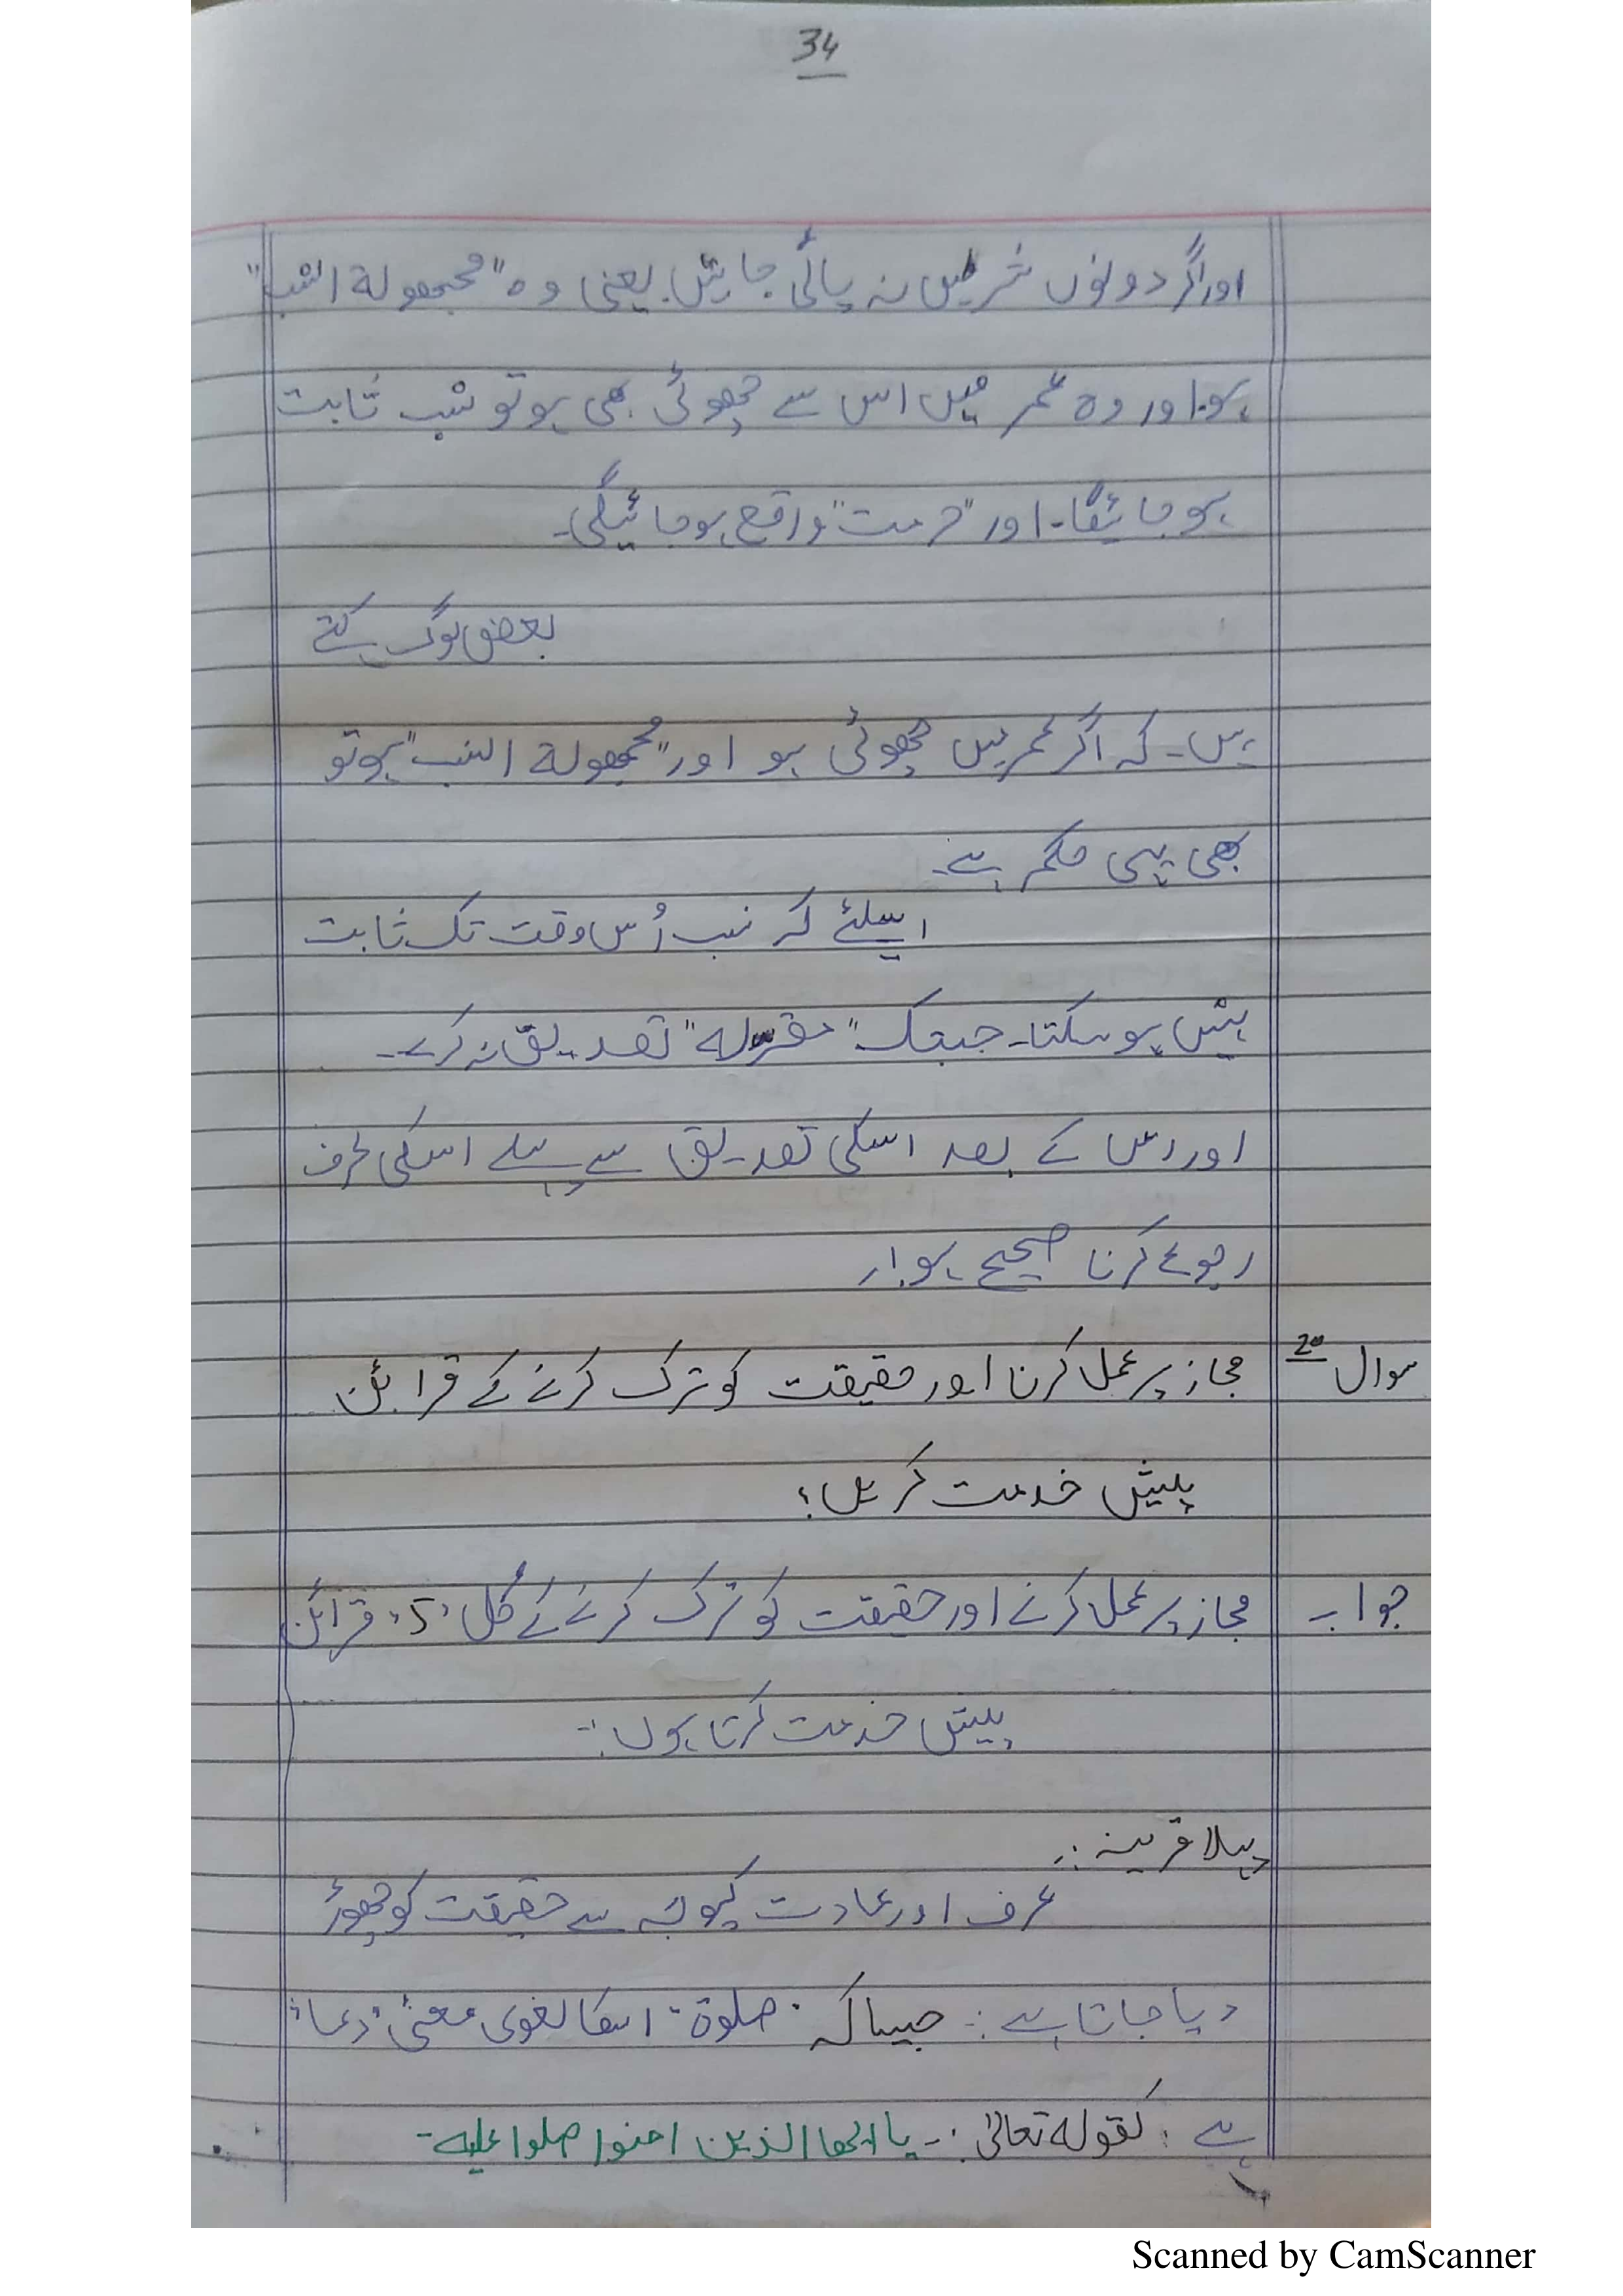 34
اور اگر دونوں شرطیں نہ پائی جائیں یعنی وہ "مجھولة النسب"
ہو اور وہ عمر میں اس سے چھوٹی بھی ہو تو نسب ثابت
ہو جائیگا۔ اور "حرمت" واقع ہو جائیگی۔
بعض لوگ کہتے
ہیں۔ کہ اگر عمر میں چھوٹی ہو اور "مجھولة النسب" ہو تو
بھی یہی حکم ہے۔
اسلئے کہ نسب اُس وقت تک ثابت
نہیں ہو سکتا۔ جبتک "مقرله" تصدیق نہ کرے۔
اور اس کے بعد اسکی تصدیق سے پہلے اسکی طرف
رجوع کرنا صحیح ہو۔
سوال 20 مجاز پر عمل کرنا اور حقیقت کو ترک کرنے کے قرائن
پیش خدمت کریں؟
جواب۔ مجاز پر عمل کرنے اور حقیقت کو ترک کرنے کے کُل '5' قرائن
پیش خدمت کرتا ہوں:-
پہلا قرینہ:۔
عرف اور عادت کیوجہ سے حقیقت کو چھوڑ
دیا جاتا ہے:- جیسا کہ "صلوة" اسکا لغوی معنیٰ "دعا"
ہے: کقوله تعالیٰ:- یا ایھا الذین امنوا صلوا علیه۔
Scanned by CamScanner